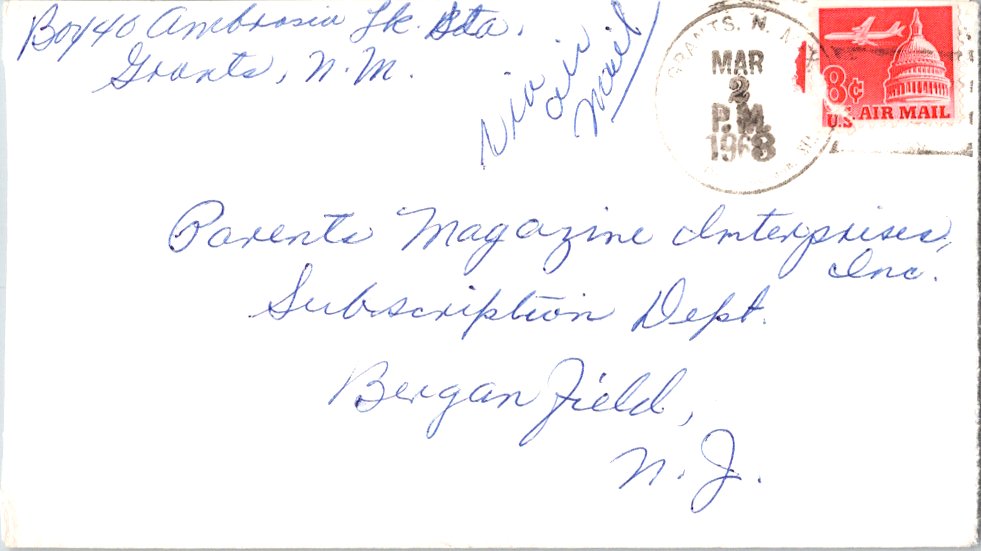 Box 40 Ambrosia Lk. Sta.
Grants, N.M.
Via
air
mail
GRANTS, N. M.
MAR
2
P.M.
1963
8¢
U.S. AIR MAIL
Parents Magazine Enterprises,
Inc.
Subscription Dept.
Bergan Field,
N.J.